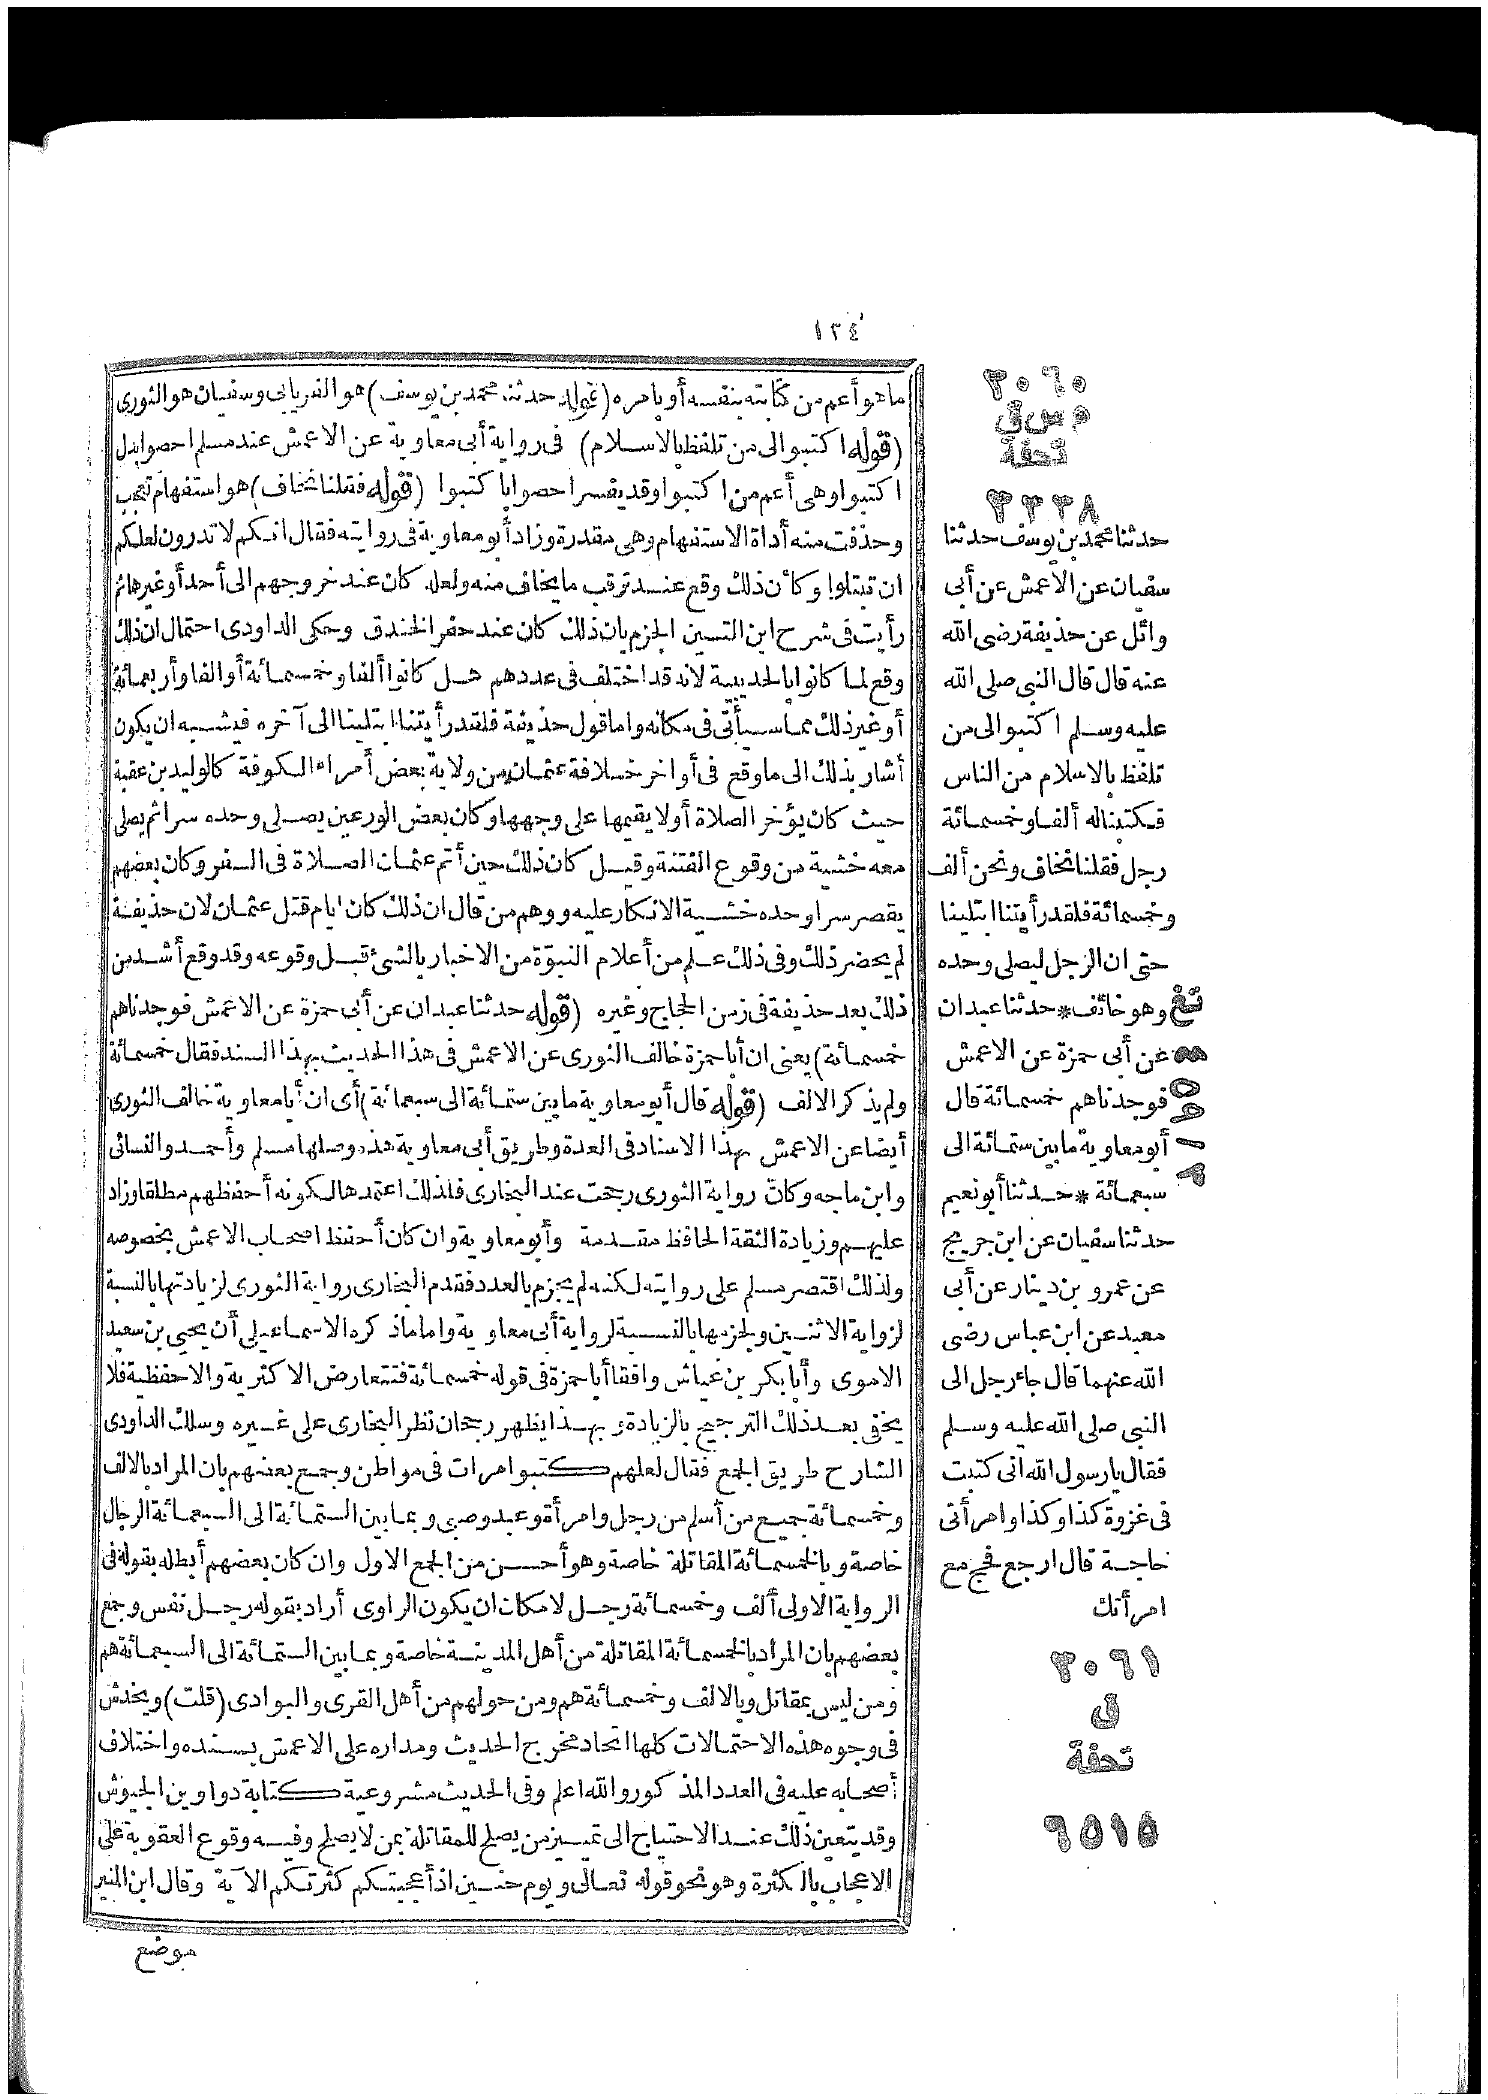 ١٢٤
ما هو أعم من كتابته بنفسه أو بامره (قوله حدثنا محمد بن يوسف) هو الفريابى وسفيان هو الثورى
(قوله اكتبوا لى من تلفظ بالاسلام) فى رواية أبى معاوية عن الاعمش عند مسلم احصوا بدل
اكتبوا وهى أعم من اكتبوا وقد يفسر احصوا باكتبوا (قوله فقلنا نخاف) هو استفهام تعجب
وحذفت منه أداة الاستفهام وهى مقدرة وزاد أبو معاوية فى روايته فقال انكم لا تدرون لعلكم
ان تبتلوا وكأن ذلك وقع عند ترقب ما يخاف منه ولعله كان عند خروجهم الى أحد أو غيرها ثم
رأيت فى شرح ابن التين الجزم بان ذلك كان عند حفر الخندق وحكى الداودى احتمال ان ذلك
وقع لما كانوا بالحديبية لانه قد اختلف فى عددهم هل كانوا ألفا وخمسمائة أو ألفا وأربعمائة
أو غير ذلك مما سيأتى فى مكانه واما قول حذيفة فلقد رأيتنا ابتلينا الى آخره فيشبه ان يكون
أشار بذلك الى ما وقع فى أواخر خلافة عثمان من ولاية بعض أمراء الكوفة كالوليد بن عقبة
حيث كان يؤخر الصلاة أو لا يقيمها على وجهها وكان بعض الورعين يصلى وحده سرا ثم يصلى
معه خشية من وقوع الفتنة وقيل كان ذلك حين أتم عثمان الصلاة فى السفر وكان بعضهم
يقصر سرا وحده خشية الانكار عليه ووهم من قال ان ذلك كان أيام قتل عثمان لان حذيفة
لم يحضر ذلك وفى ذلك علم من أعلام النبوّة من الاخبار بالشئ قبل وقوعه وقد وقع أشد من
ذلك بعد حذيفة فى زمن الحجاج وغيره (قوله حدثنا عبدان عن أبى حمزة عن الاعمش فوجدناهم
خمسمائة) يعنى ان أبا حمزة خالف الثورى عن الاعمش فى هذا الحديث بهذا السند فقال خمسمائة
ولم يذكر الالف (قوله قال أبو معاوية ما بين ستمائة الى سبعمائة) أى ان أبا معاوية خالف الثورى
أيضا عن الاعمش بهذا الاسناد فى العدة وطريق أبى معاوية هذه وصلها مسلم وأحمد والنسائى
وابن ماجه وكأنّ رواية الثورى رجحت عند البخارى فلذلك اعتمدها لكونه أحفظهم مطلقا وزاد
عليهم وزيادة الثقة الحافظ مقدمة وأبو معاوية وان كان أحفظ اصحاب الاعمش بخصوصه
ولذلك اقتصر مسلم على روايته لكنه لم يجزم بالعدد فقدم البخارى رواية الثورى لزيادتها بالنسبة
لرواية الاثنين ولجزمها بالنسبة لرواية أبى معاوية واما ما ذكره الاسماعيلى أن يحيى بن سعيد
الاموى وأبا بكر بن عياش وافقا أبا حمزة فى قوله خمسمائة فتتعارض الاكثرية والاحفظية فلا
يخفى بعد ذلك الترجيح بالزيادة وبهذا يظهر رجحان نظر البخارى على غيره وسلك الداودى
الشارح طريق الجمع فقال لعلهم كتبوا مرات فى مواطن وجمع بعضهم بان المراد بالالف
وخمسمائة جميع من أسلم من رجل وامرأة وعبد وصبى وبما بين الستمائة الى السبعمائة الرجال
خاصة وبالخمسمائة المقاتلة خاصة وهو أحسن من الجمع الاول وان كان بعضهم أبطله بقوله فى
الرواية الاولى ألف وخمسمائة رجل لامكان ان يكون الراوى أراد بقوله رجل نفس وجمع
بعضهم بان المراد بالخمسمائة المقاتلة من أهل المدينة خاصة وبما بين الستمائة الى السبعمائة هم
ومن ليس بمقاتل وبالالف وخمسمائة هم ومن حولهم من أهل القرى والبوادى (قلت) ويخدش
فى وجوه هذه الاحتمالات كلها اتحاد مخرج الحديث ومداره على الاعمش بسنده واختلاف
أصحابه عليه فى العدد المذكور والله اعلم وفى الحديث مشروعية كتابة دواوين الجيوش
وقد يتعين ذلك عند الاحتياج الى تمييز من يصلح للمقاتلة بمن لا يصلح وفيه وقوع العقوبة على
الاعجاب بالكثرة وهو نحو قوله تعالى ويوم حنين اذ أعجبتكم كثرتكم الآية وقال ابن المنير
موضع
٣٠٦٠
م س ق
تحفة
٣٣٣٨
حدثنا محمد بن يوسف حدثنا
سفيان عن الاعمش عن أبى
وائل عن حذيفة رضى الله
عنه قال قال النبى صلى الله
عليه وسلم اكتبوا لى من
تلفظ بالاسلام من الناس
فكتبنا له ألفا وخمسمائة
رجل فقلنا نخاف ونحن ألف
وخمسمائة فلقد رأيتنا ابتلينا
حتى ان الرجل ليصلى وحده
وهو خائف * حدثنا عبدان
عن أبى حمزة عن الاعمش
فوجدناهم خمسمائة قال
أبو معاوية ما بين ستمائة الى
سبعمائة * حدثنا أبو نعيم
حدثنا سفيان عن ابن جريج
عن عمرو بن دينار عن أبى
معبد عن ابن عباس رضى
الله عنهما قال جاء رجل الى
النبى صلى الله عليه وسلم
فقال يا رسول الله انى كتبت
فى غزوة كذا وكذا وامرأتى
حاجة قال ارجع فحج مع
امرأتك
٣٠٦١
ق
تحفة
٦٥١٥
تغ